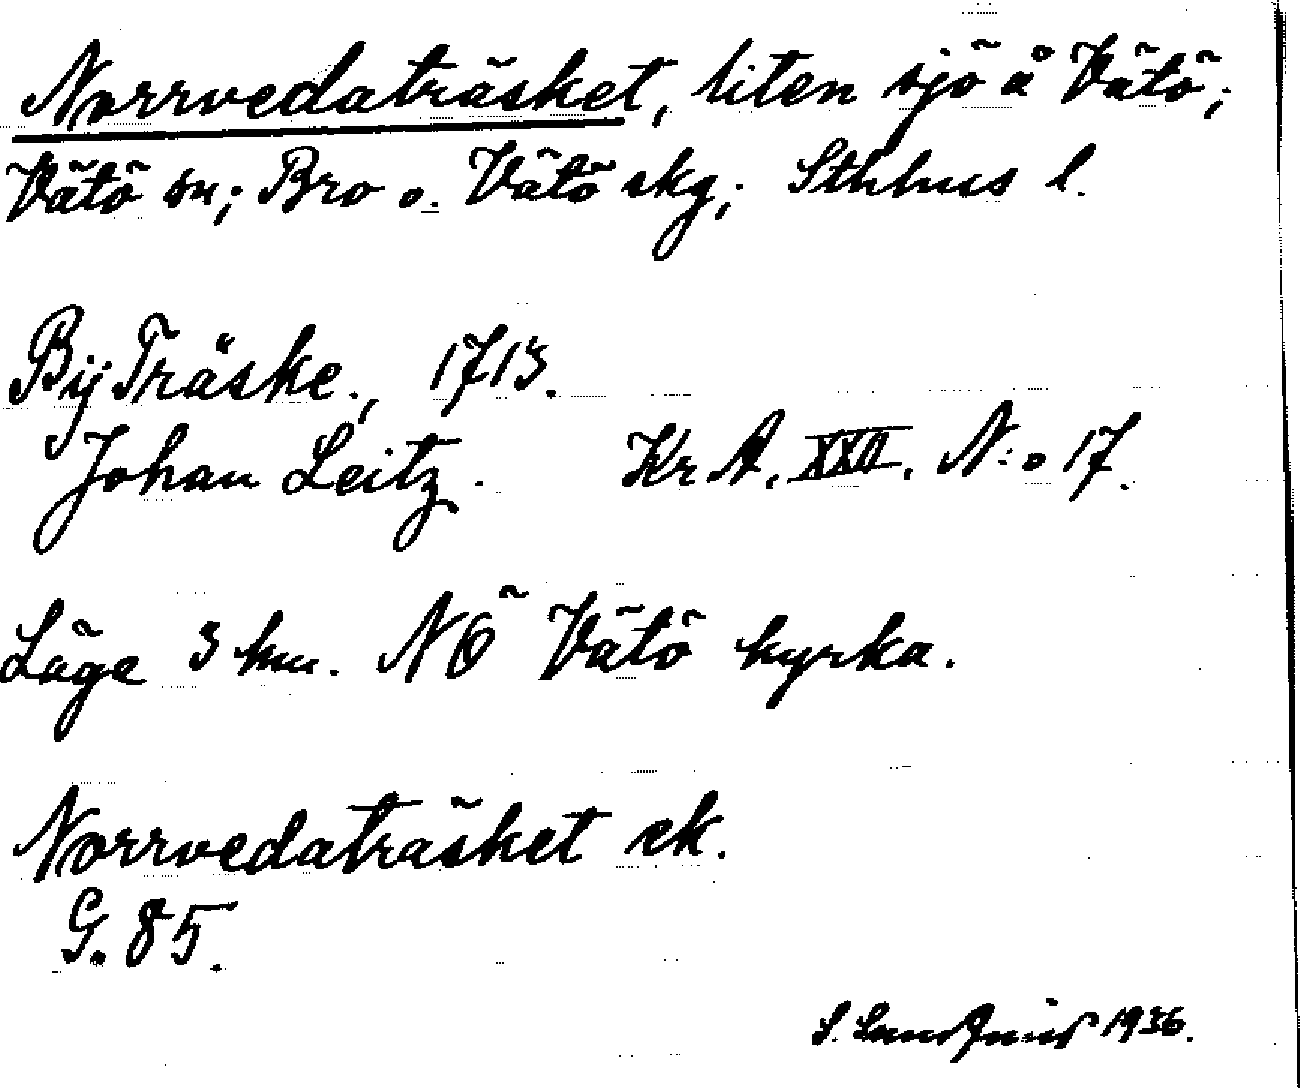 Norrvedaträsket, liten sjö å Vätö;
Vätö sn; Bro o. Vätö skg; Sthlms l.
Bij Träske., 1713.
Johan Leitz. Kr A. XXII. N:o 17.
Läge 3 km. NÖ Vätö kyrka.
Norrvedaträsket ek.
G. 85.
S. 1936.